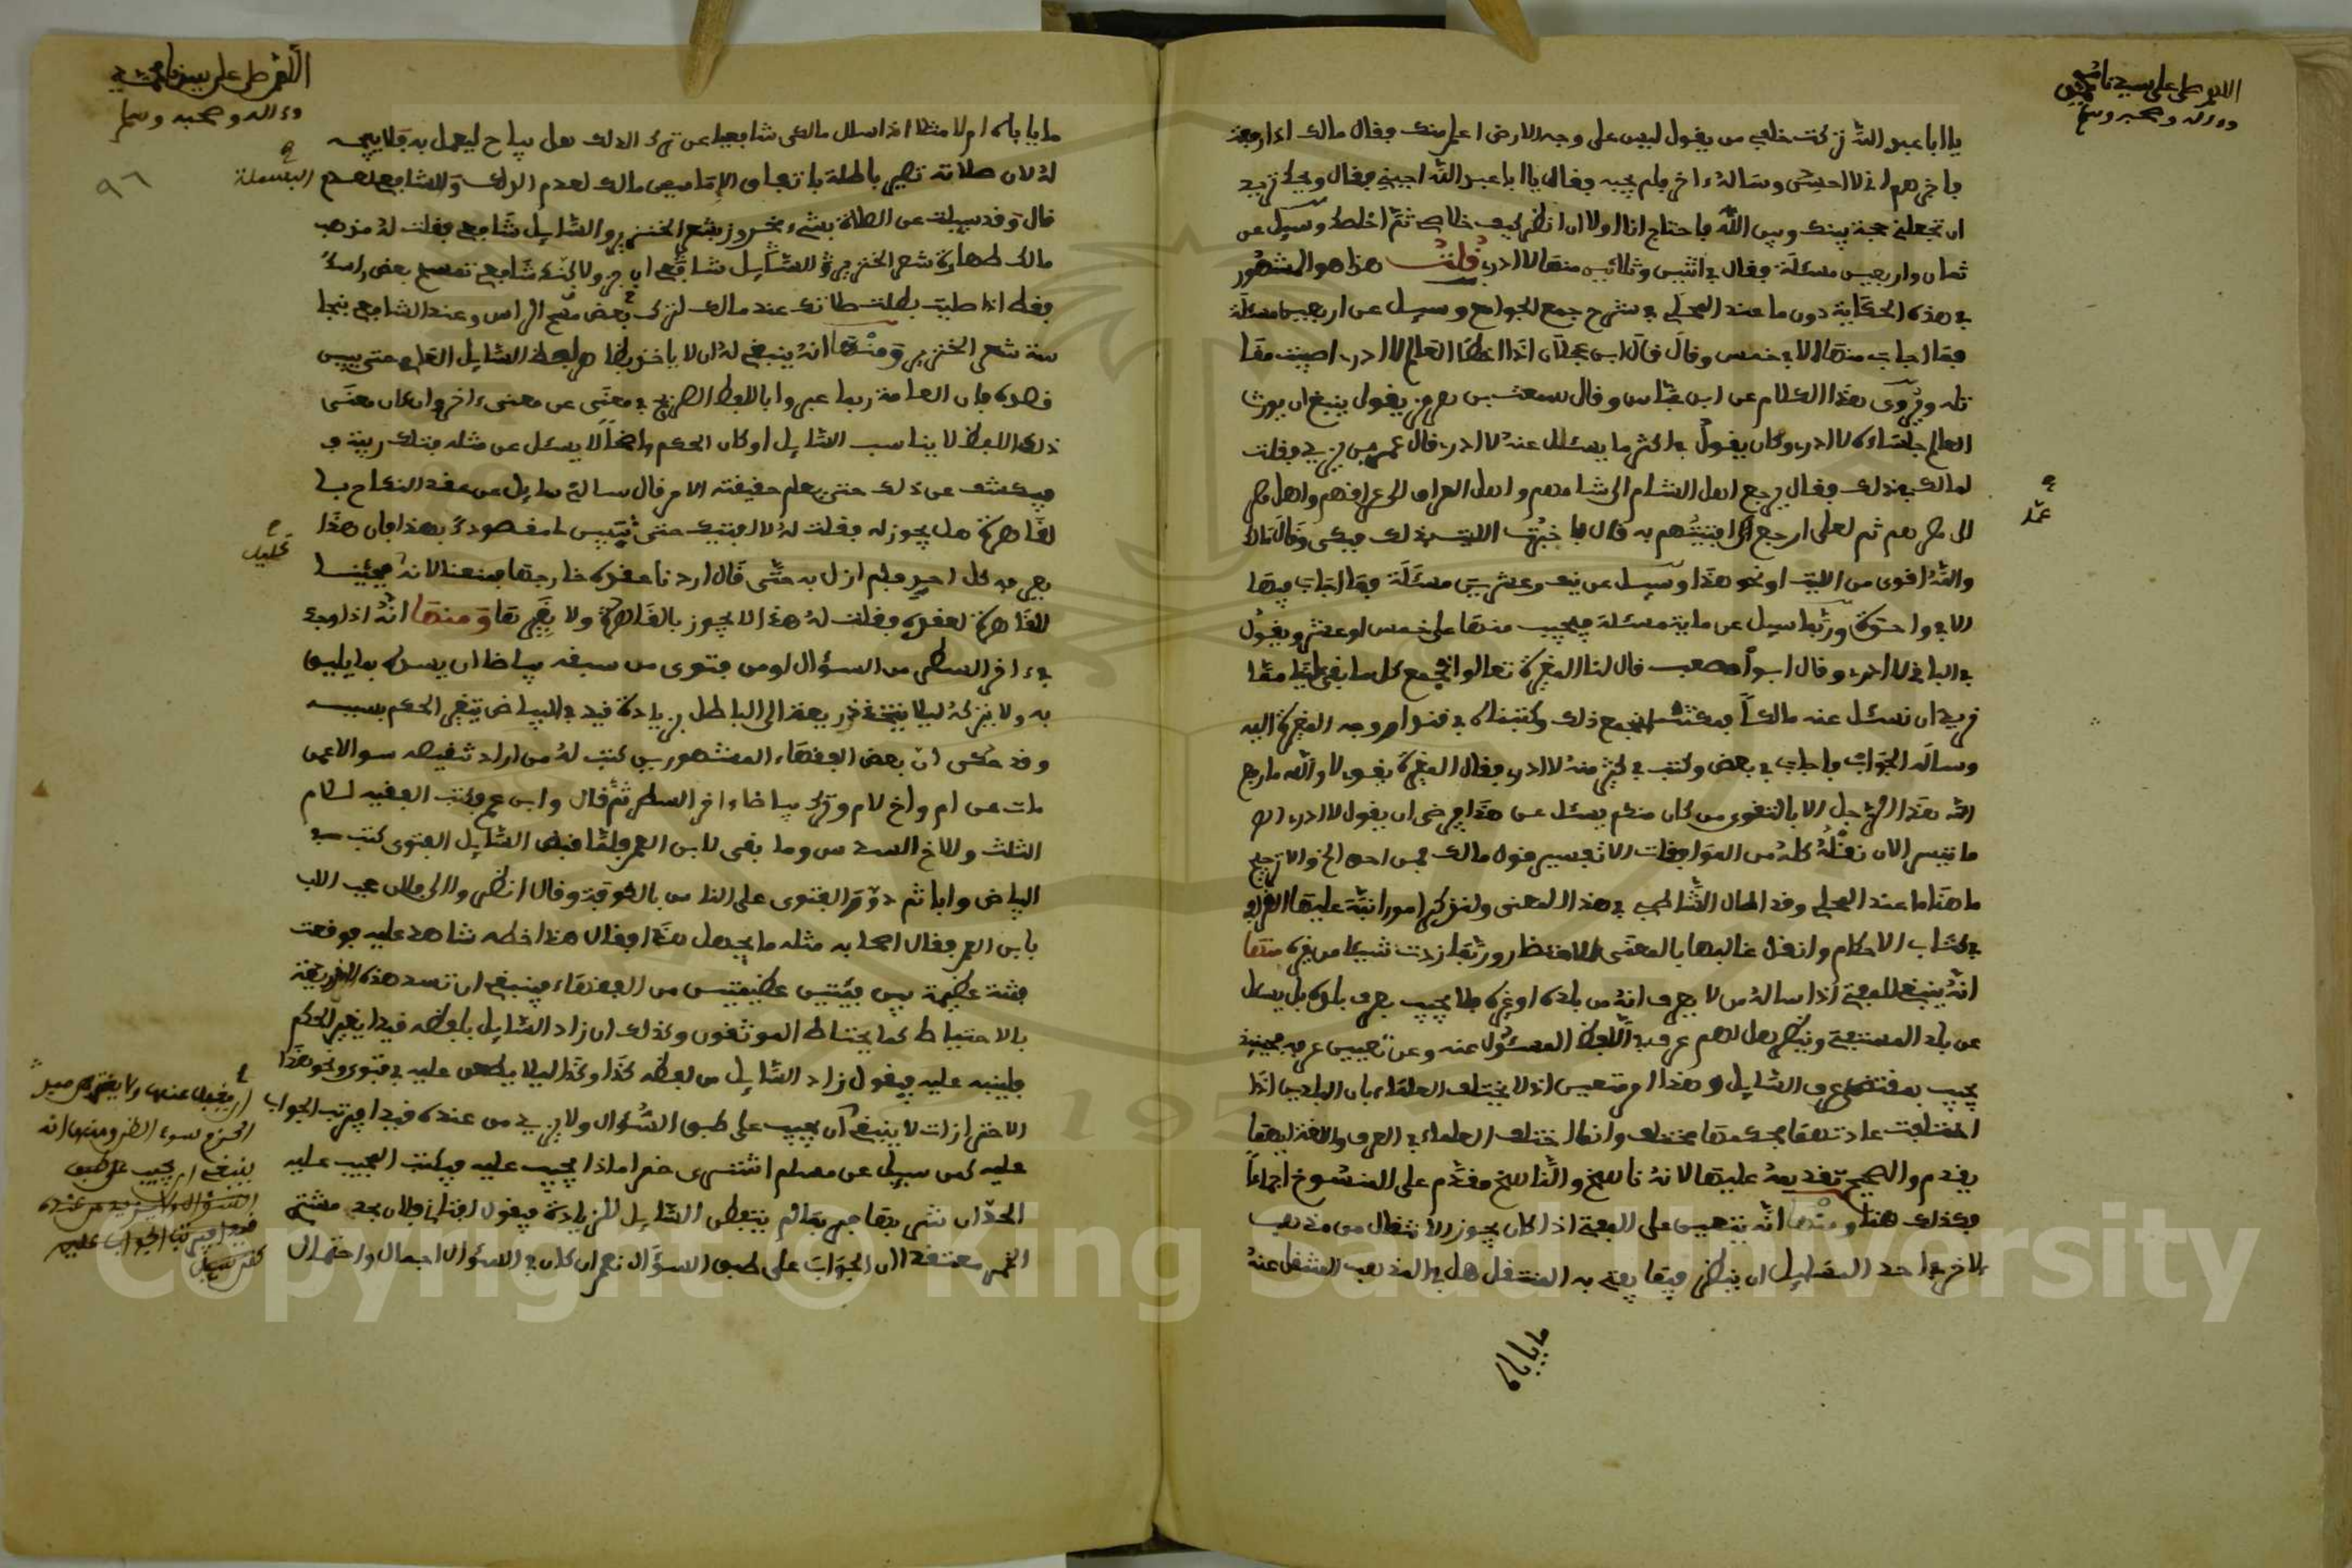 اللهم صل على سيدنا محمد
وءاله وصحبه وسلم
يا ابا عبد الله تركت خلفي من يقول ليس على وجه الارض اعلم منك فقال مالك اذا رجعت
فاخبرهم اني لا احسن وساله ءاخر فلم يجبه فقال يا ابا عبد الله اجبني فقال ويحك تريد
ان تجعلني حجة بينك وبين الله فاحتاج انا اولا ان انظر كيف خلاصي ثم اخلصك وسيل عن
ثمان واربعين مسئلة فقال في اثنتين وثلاثين منها لا ادري قلت هذا هو المشهور
في هذه الحكاية دون ما عند المحلي في شرح جمع الجوامع وسيل عن اربعين مسئلة
فما اجاب منها الا في خمس وقال قال ابن عجلان اذا اخطا العالم لا ادري اصيبت مقا
تله ويروى هذا الكلام عن ابن عباس وقال سمعت بن هرمز يقول ينبغي ان يورث
العالم جلساءه لا ادري وكان يقول في اكثر ما يسئل عنه لا ادري قال عمر بن يزيد فقلت
لمالك في ذلك فقال يرجع اهل الشام الى شامهم واهل العراق الى عراقهم واهل مصر
الى مصرهم ثم لعلي ارجع عما افتيتهم به قال فاخبرت الليث بذلك فبكى وقال مالك
عمّا
والله اقوى من الليث او نحو هذا وسيل عن نيف وعشرين مسئلة فما اجاب فيها
الا في واحدة وربما سيل عن ماية مسئلة فيجيب منها على خمس او عشر ويقول
في الباقي لا ادري وقال ابو مصعب قال لنا المغيرة تعالوا نجمع كل ما بقي علينا مما
نريد ان نسئل عنه مالكا فمكثنا نجمع ذلك وكتبناه في قنداق ووجه المغيرة اليه
وساله الجواب فاجاب في بعض وكتب في كثير منه لا ادري فقال المغيرة يا قوم لا والله ما رفع
الله هذا الرجل الا بالتقوى من كان منكم يسئل عن هذا فيرضى ان يقول لا ادري الى
ما تيسر الان نقله كله من الموافقات الا تفسير قول مالك فمن احد الخ والا ترجيح
ما هنا ما عند المحلي وقد اطال الشاطبي في هذا المعنى ولنذكر امورا نبه عليها القرافي
في كتاب الاحكام وانقل غالبها بالمعنى للاختصار وربما زدت شيئا من غيره منها
انه ينبغي للمفتي اذا ساله من لا يعرف انه من بلده او غيره فلا يجيب بعرف بلده بل يسئل
عن بلد المستفتي وينظر هل لهم عرف في اللفظ المسئول عنه وعن تعيين عرفه فحينئذ
يجيب بمقتضى عرف السايل وهذا امر متعين اذ لا يختلف العلماء بان البلدين اذا
اختلفت عادتهما فحكمهما مختلف وانما اختلف العلماء في العرف واللغة ايهما
يقدم والصحيح تقديمه عليها لانه ناسخ والناسخ مقدم على المنسوخ اجماعا
فكذلك هنا ومنها انه يتعين على المفتي اذا كان يجوز الانتقال من مذهب
لاخر في احد المسايل ان ينظر فيما يفتي به المنتقل هل في المذهب المنتقل عنه
ما يأباه
اللهم صل على سيدنا محمد
وءاله وصحبه وسلم
٩٦
ما يأباه ام لا مثلا اذا سال مالكي شافعيا عن ترك الدلك هل يباح ليعمل به فلا يبيحه
له لان صلاته تصير باطلة باتفاق الإمامين مالك لعدم الدلك والشافعي لعدم
البسملة
قال وقد سيلت عن الصلاة بشيء مخروز بشعر الخنزير والسايل شافعي فقلت له مذهب
مالك طهارة شعر الخنزير والسايل شافعي
فقلت اذا صليت بطلت صلاتك عند مالك لترك بعض مسح الراس وعند الشافعي بنجا
سة شعر الخنزير ومنها انه ينبغي له ان لا ياخذ بظاهر لفظ السايل العامي حتى يتبين
قصده فان العامة ربما عبروا باللفظ الصريح في معنى عن معنى ءاخر وان كان معنى
ذلك اللفظ لا يناسب السايل او كان الحكم واضحا لا يسئل عن مثله فتلك ريبة
فيكشف عن ذلك حتى يعلم حقيقة الامر قال سالني سايل عن عقد النكاح با
لقاهرة هل يجوز له فقلت له لا افتيك حتى تبين ما مقصودك بهذا فان هذا
يعرفه كل احد فلم ازل به حتى قال اردنا عقده خارجها فمنعنا لانه تحليل فجئنا
تحليل
للقاهرة لعقده فقلت له هذا لا يجوز بالقاهرة ولا بغيرها ومنها انه اذا وجد
في ءاخر السطر من السؤال او من فتوى من سبقه بياضا ان يسده بما يليق
به ولا يتركه ليلا يتخذ ذريعة الى الباطل بزيادة قيد في البياض يتغير الحكم بسببه
وقد حكي ان بعض الفقهاء المشهورين كتب له من اراد تنقيصه سوالا عمن
مات عن ام واخ لام وترك بياضا ءاخر السطر ثم قال وابن عم فكتب الفقيه للام
الثلث وللاخ السدس وما بقي لابن العم فلما قبض السايل الفتوى كتب في
البياض وابا ثم دور الفتوى على الناس بالكوفة وقال انظروا الى فلان حجب الاب
بابن العم فقال اصحابه مثله ما يجهل هذا فقال هذا خطه شاهد عليه فوقعت
فتنة عظيمة بين فئتين عظيمتين من الفقهاء فينبغي ان تسد هذه الذريعة
بالاحتياط كما يحتاط الموثقون وكذلك ان زاد السايل بلفظه قيدا يغير الحكم
فلينبه عليه فيقول زاد السايل من لفظه كذا وكذا ليلا يطعن عليه في فتوى ونحو هذا
الاحترازات لا ينبغي ان يجيب على طبق السؤال ولا يزيد من عنده قيدا فيرتب الجواب
عليه كمن سيل عن مسلم اشترى خمرا ماذا يجب عليه فيكتب المجيب عليه
الحد ان شربها
الخمر معتقدا ان الجواب على طبق السؤال نعم ان كان في السؤال اجمال واحتمال
ان يغفل عنها ولا يغتر
الحزم سوء الظن ومنها انه
ينبغي ان يجيب على طبق
السؤال ولا يزيد من عنده
قيدا فيرتب الجواب عليه
كمن سيل
Copyright © King Saud University
1957